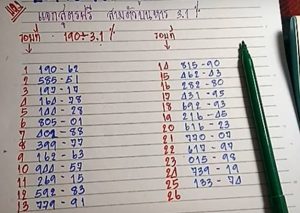 แจกสูตรฟรี สามตัวบนหาร 3.1 %
รอบที่ 190÷3.1 % รอบที่
1 190-62
2 585-51
3 197-17
4 164-78
5 144-28
6 305-01
7 401-88
8 399-77
9 162-63
10 944-57
11 269-15
12 592-83
13 779-91
14 815-90
15 462-43
16 282-80
17 431-95
18 692-93
19 216-45
20 616-23
21 770-07
22 617-97
23 015-98
24 739-19
25 183-74
26